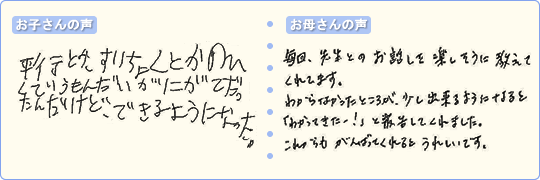 お子さんの声
平行とか、すいちょくとかのめん
くていうもんだいがにがてだっ
たんだけど、できるようになった。
お母さんの声
毎回、先生との お話しを 楽しそうに 教えて
くれてます。
わからなかったところが、少し出来るようになると
「わかってきたー！」と報告してくれました。
これからも がんばってくれると うれしいです。